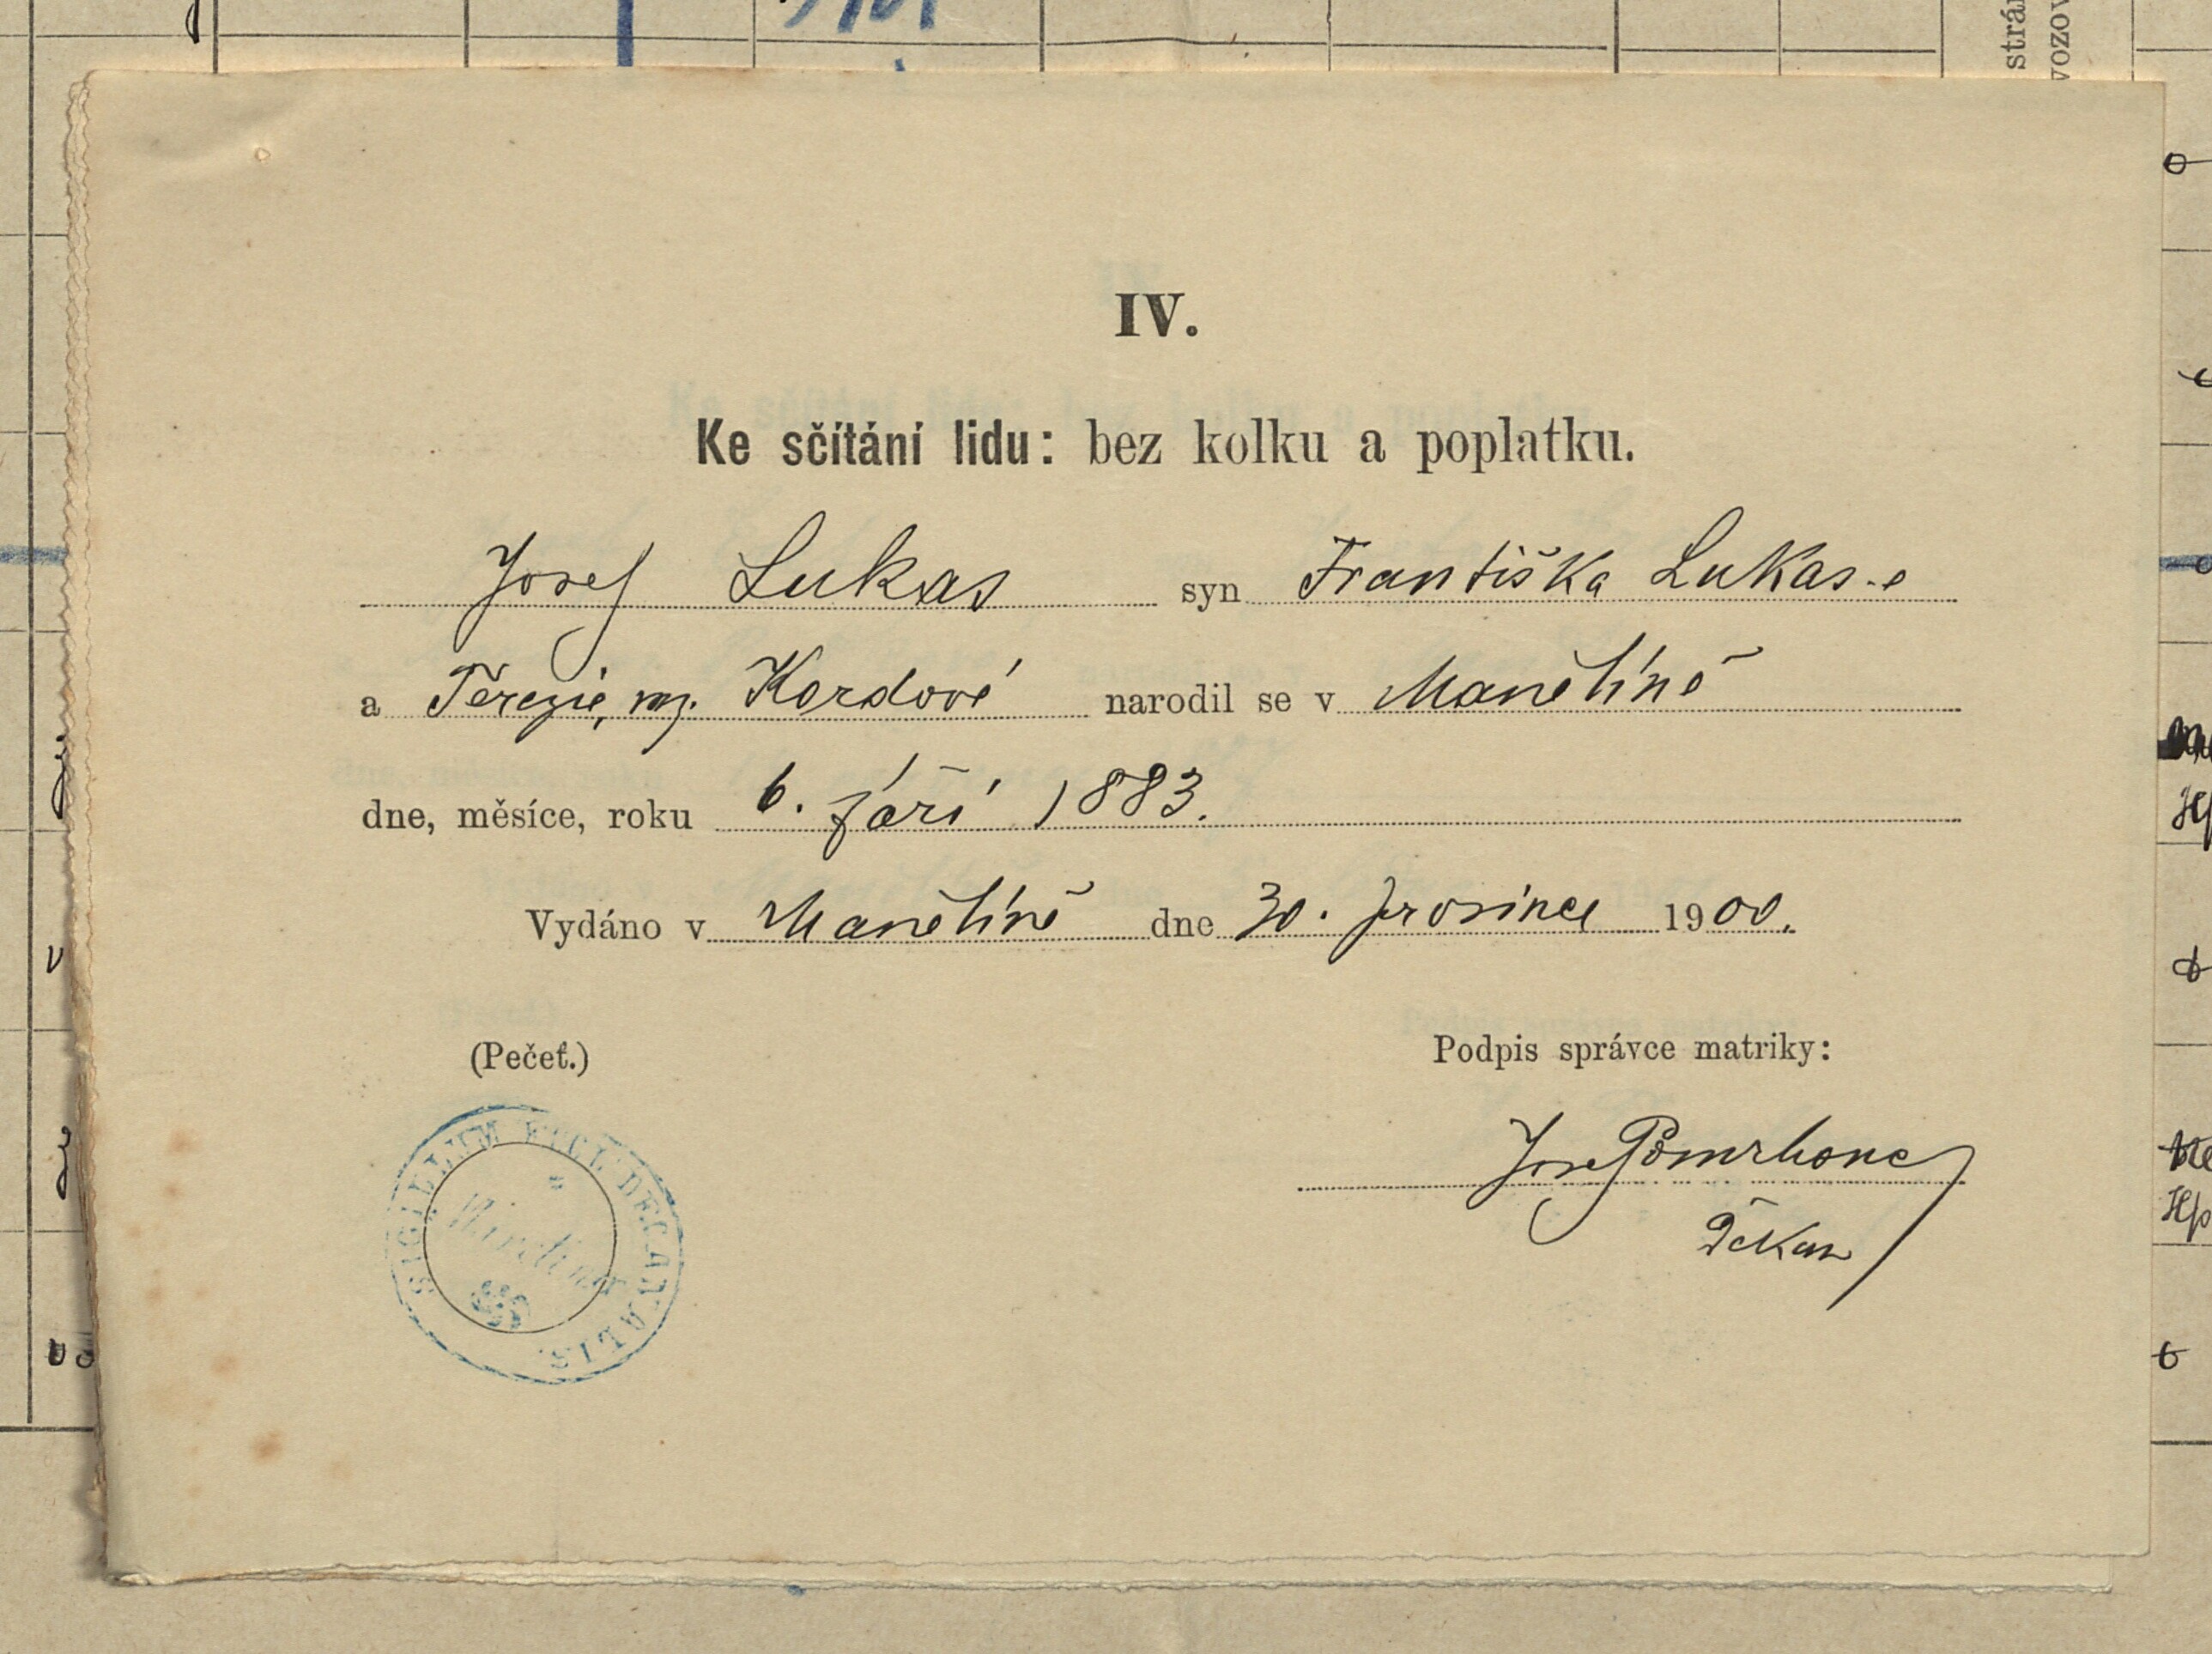 IV.
Ke sčítání lidu: bez kolku a poplatku.
Josef Lukas syn Františka Lukas-e
a Terezie, roz. Kordové narodil se v Manětíně
dne, měsíce, roku 6. září 1883.
Vydáno v Manětíně dne 30. prosince 1900.
(Pečeť.)
Podpis správce matriky:
SIGILLUM ECCL. DECANALIS.
Josef
Děkan
strá
vozov